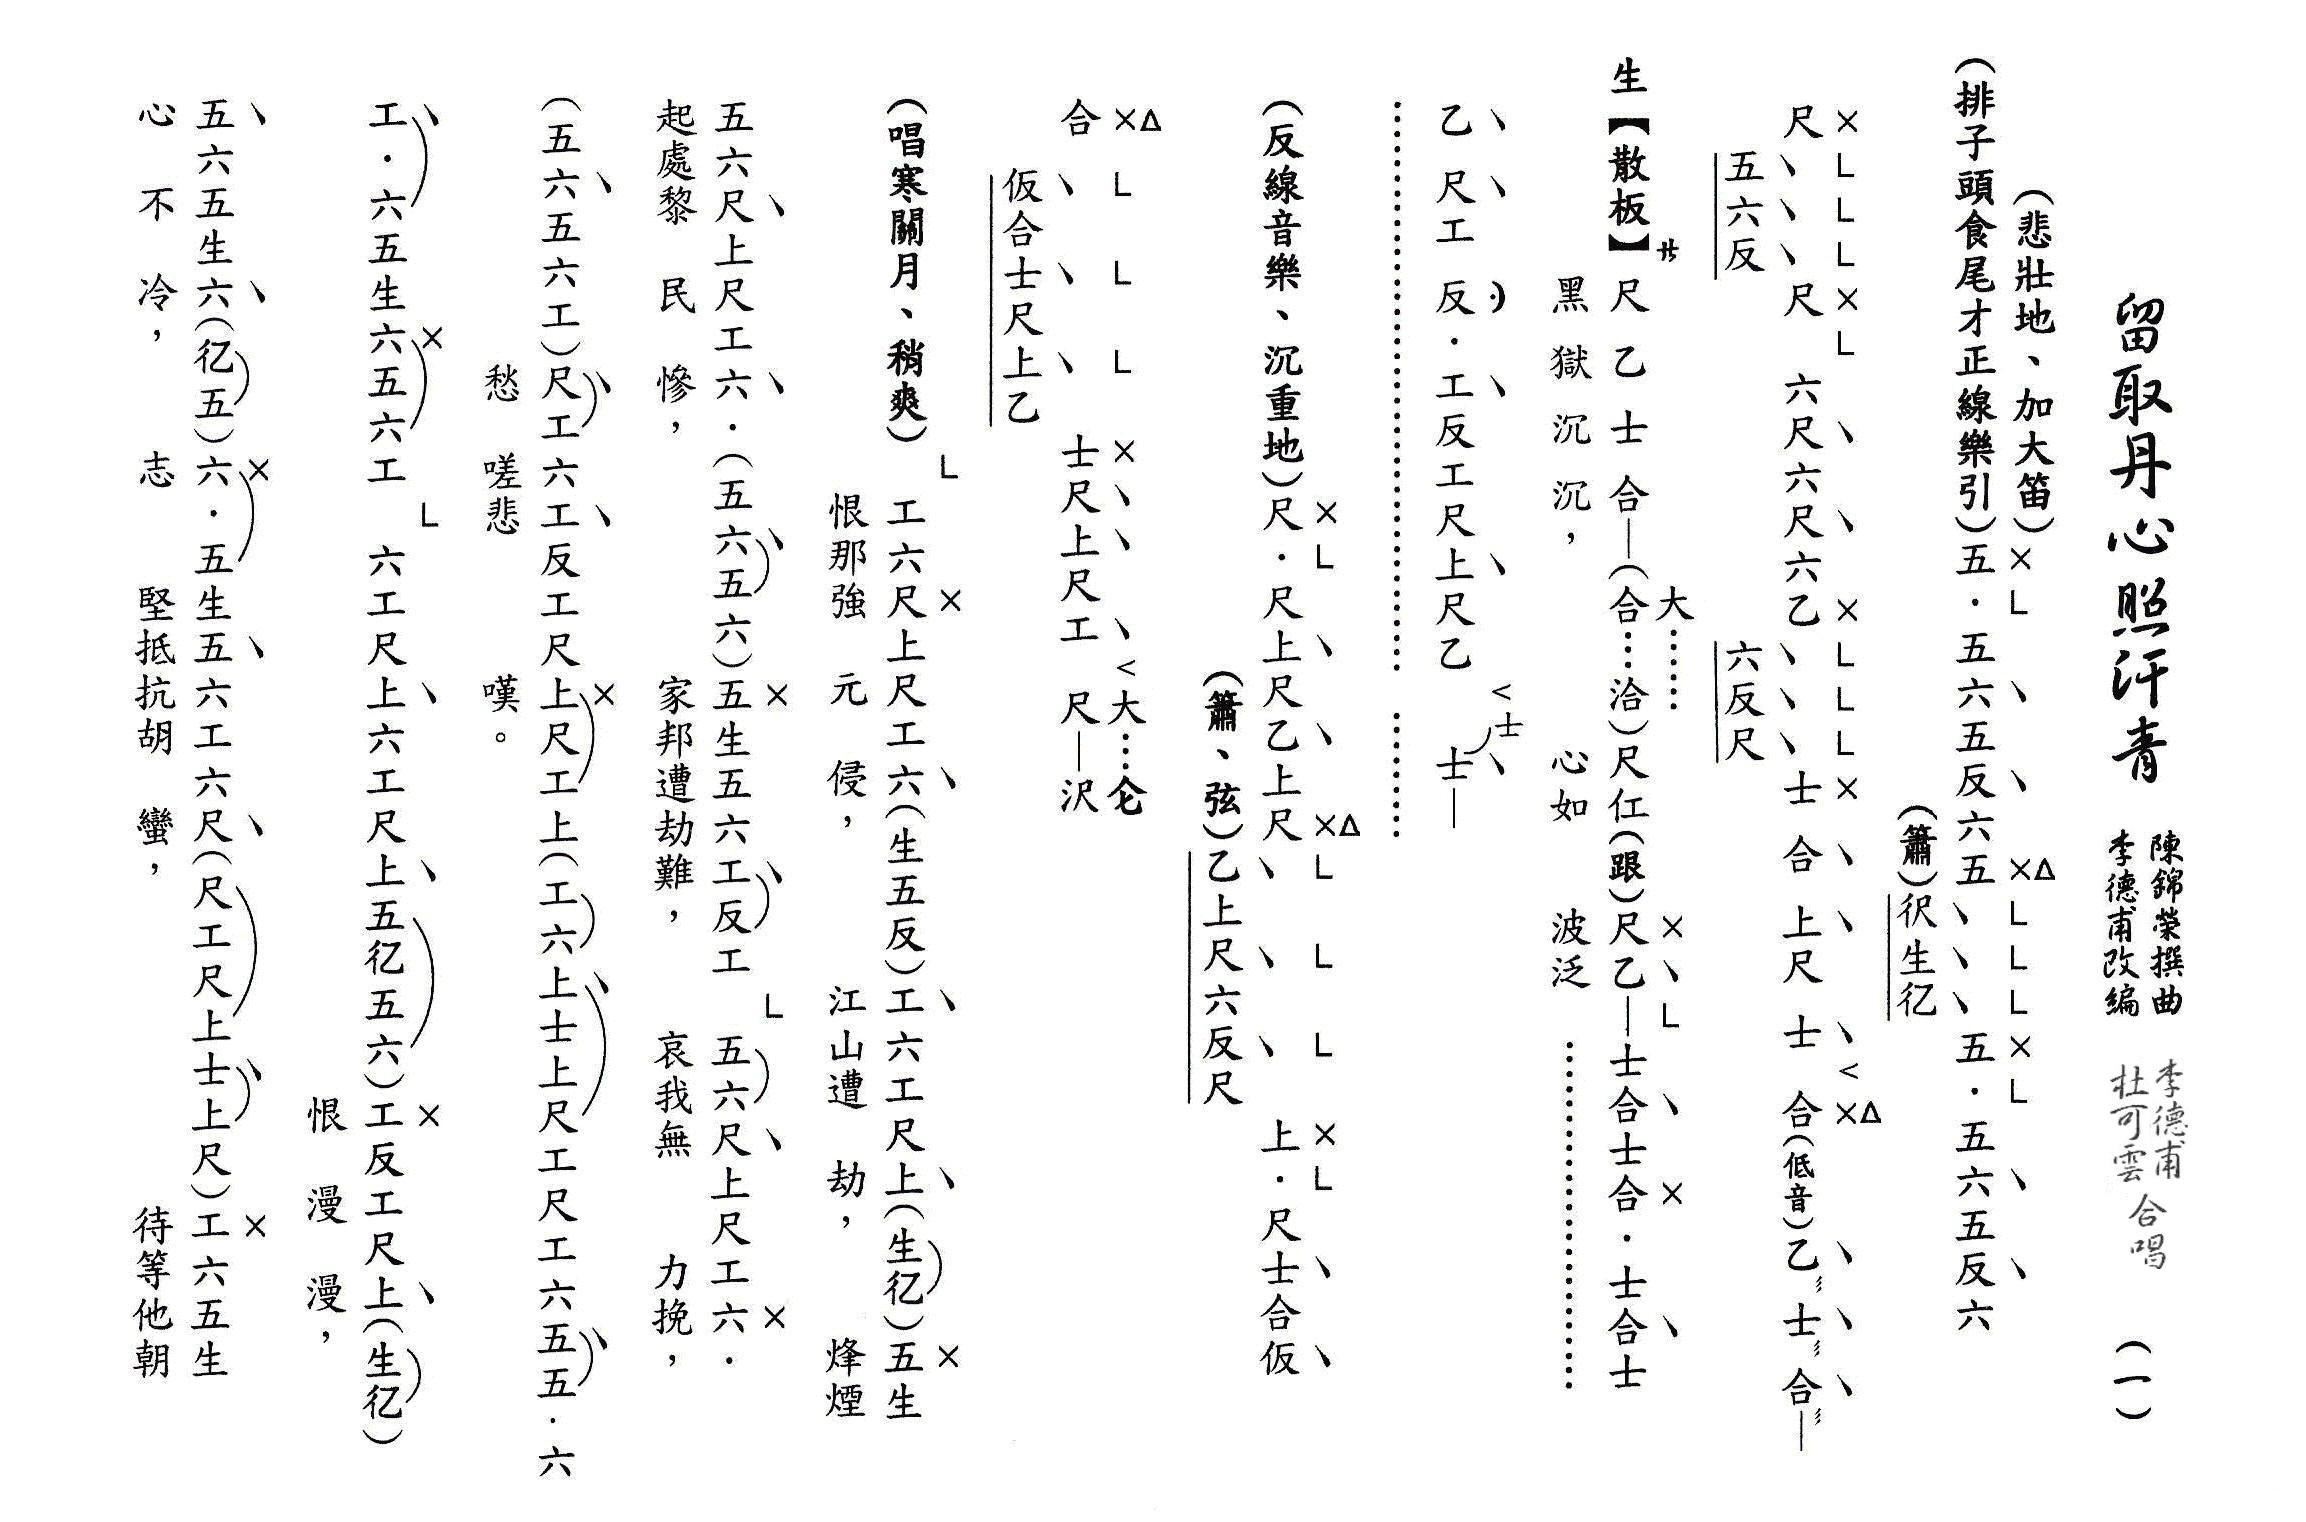 留取丹心照汗青
陳錦榮撰曲
李德甫改編
李德甫
杜可雲
合唱
(一)
(悲壯地、加大笛)
(排子頭食尾才正線樂引)五·五六五反六五五·五六五反六
×L×△LLL×L
(簫)伬生亿
×LLL×L×LLL×<×△
尺尺六尺六尺六乙士合上尺士合(低音)乙士合—
五六反六反尺
生【散板】サ尺乙士合—(合⋯洽)尺仜(跟)尺乙—士合士合·士合士
大⋯⋯××L
黑獄沉沉,心如波泛
乙尺工反·工反工尺上尺乙士—
<士
(反線音樂、沉重地)尺·尺上尺乙上尺上·尺士合仮
×L×△LLL×L
(簫、弦)乙上尺六反尺
×△LLL×<大⋯仑
合士尺上尺工尺—沢
仮合士尺上乙
(唱寒關月、稍爽)工六尺上尺工六(生五反)工六工尺上(生亿)五生
L××
恨那強元侵,江山遭劫,烽煙
五六尺上尺工六·(五六五六)五生五六工反工五六尺上尺工六·
×L×
起處黎民慘,家邦遭劫難,哀我無力挽,
(五六五六工)尺工六工工反工尺上尺工上(工六上士上尺工尺工六五五·六
×
愁嗟悲嘆。
工·六五生六五六工六工尺上六工尺上五亿五六)工反工尺上(生亿)
×L×
恨漫漫,
五六五生六(亿五)六·五生五六工六尺(尺工尺上士上尺)工六五生
××
心不冷,志堅抵抗胡蠻,待等他朝